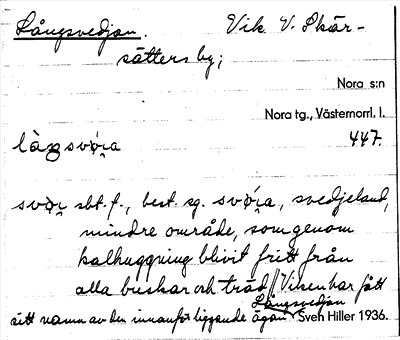 Långsvedjan. Vik V. Skär-
sätters by;
Nora s:n
Nora tg., Västernorrl. l.
447.
sbt. f., best. sg. svedjeland,
mindre område, som genom
kalhuggning blivit fritt från
alla buskar och träd // Viken har fått
Långsvedjan
sitt namn av den innanför liggande ägan. Sven Hiller 1936.